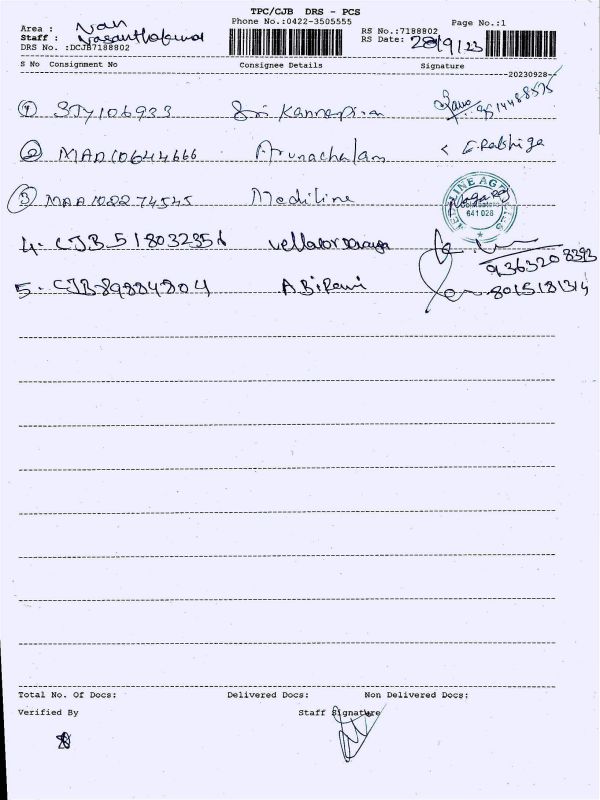 TPC/CJB DRS - PCS
Area : Van Phone No.:0422-3505555 Page No.:1
Staff : RS No.:7188802
DRS No. :DCJB7188802 RS Date: 28/9/23
S No Consignment No Consignee Details Signature
20230928
① STY106933 Sri Kannapiran 9514488575
② MAD10644666 Arunachalam
③ Mediline Nagaraj
641 028
4. CJB 9363208393
5. CJB89884804 ABiRami 8015181314
Total No. Of Docs: Delivered Docs: Non Delivered Docs:
Verified By Staff Signature